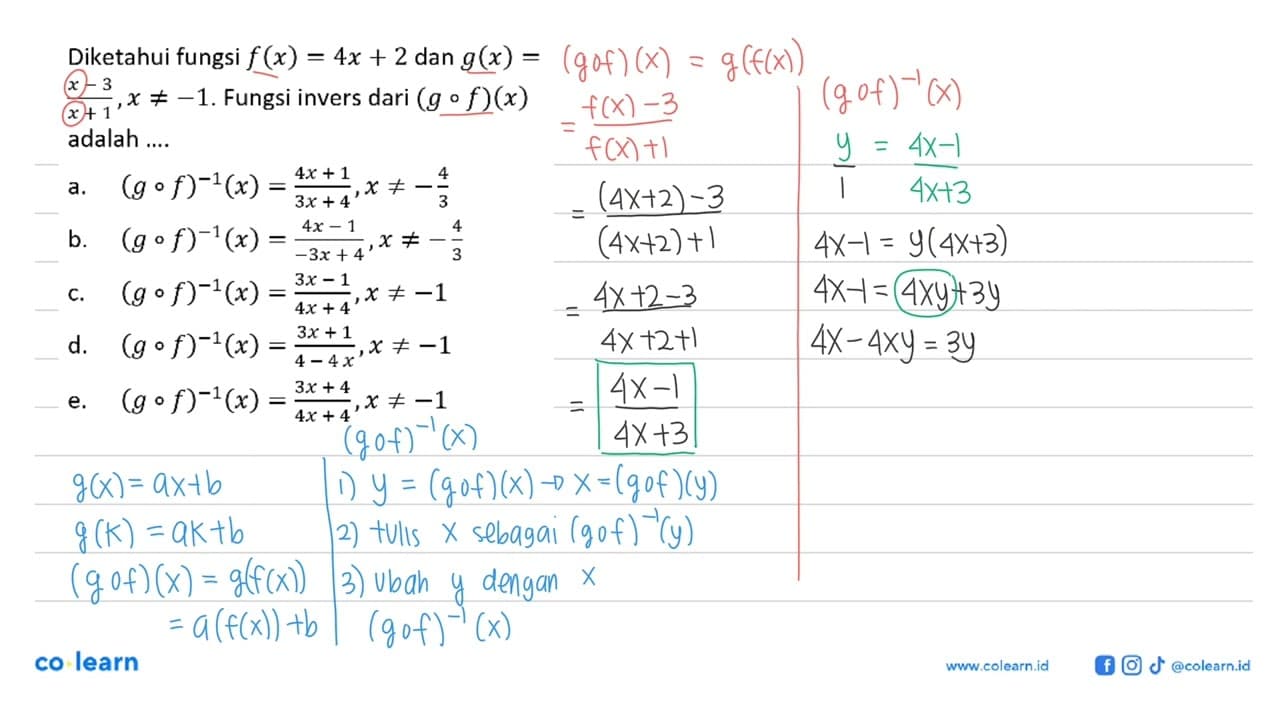 Diketahui fungsi f(x) = 4x + 2 dan g(x) =
(x - 3)/(x + 1), x ≠ -1. Fungsi invers dari (g ∘ f)(x)
adalah ....
a. (g ∘ f)⁻¹(x) = (4x + 1)/(3x + 4), x ≠ -4/3
b. (g ∘ f)⁻¹(x) = (4x - 1)/(-3x + 4), x ≠ -4/3
c. (g ∘ f)⁻¹(x) = (3x - 1)/(4x + 4), x ≠ -1
d. (g ∘ f)⁻¹(x) = (3x + 1)/(4 - 4x), x ≠ -1
e. (g ∘ f)⁻¹(x) = (3x + 4)/(4x + 4), x ≠ -1
(gof)(x) = g(f(x))
= (f(x) - 3)/(f(x) + 1)
= ((4x+2) - 3)/((4x+2) + 1)
= (4x+2-3)/(4x+2+1)
= (4x-1)/(4x+3)
(gof)⁻¹(x)
y/1 = (4x-1)/(4x+3)
4x-1 = y(4x+3)
4x-1 = 4xy+3y
4x-4xy = 3y
g(x) = ax+b
g(k) = ak+b
(gof)(x) = g(f(x))
= a(f(x))+b
(gof)⁻¹(x)
1) y = (gof)(x) → x = (gof)(y)
2) tulis x sebagai (gof)⁻¹(y)
3) ubah y dengan x
(gof)⁻¹(x)
co learn
www.colearn.id
@colearn.id